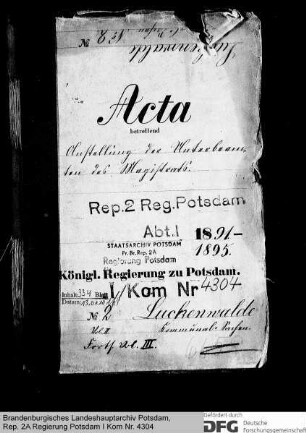 Luckenwalde
№ 8
Acta
betreffend
Anstellung der Unterbeam-
ten des Magistrats.
Rep.2 Reg.Potsdam
Abt.I 1891-
1895.
STAATSARCHIV POTSDAM
Pr. Br. Rep. 2A
Regierung Potsdam
Königl. Regierung zu Potsdam.
I/Kom Nr 4304
№ 2 Luckenwalde
Kommunal-Sachen.
Forts. III.
Brandenburgisches Landeshauptarchiv Potsdam,
Rep. 2A Regierung Potsdam I Kom Nr. 4304
gefördert durch
DFG Deutsche
Forschungsgemeinschaft